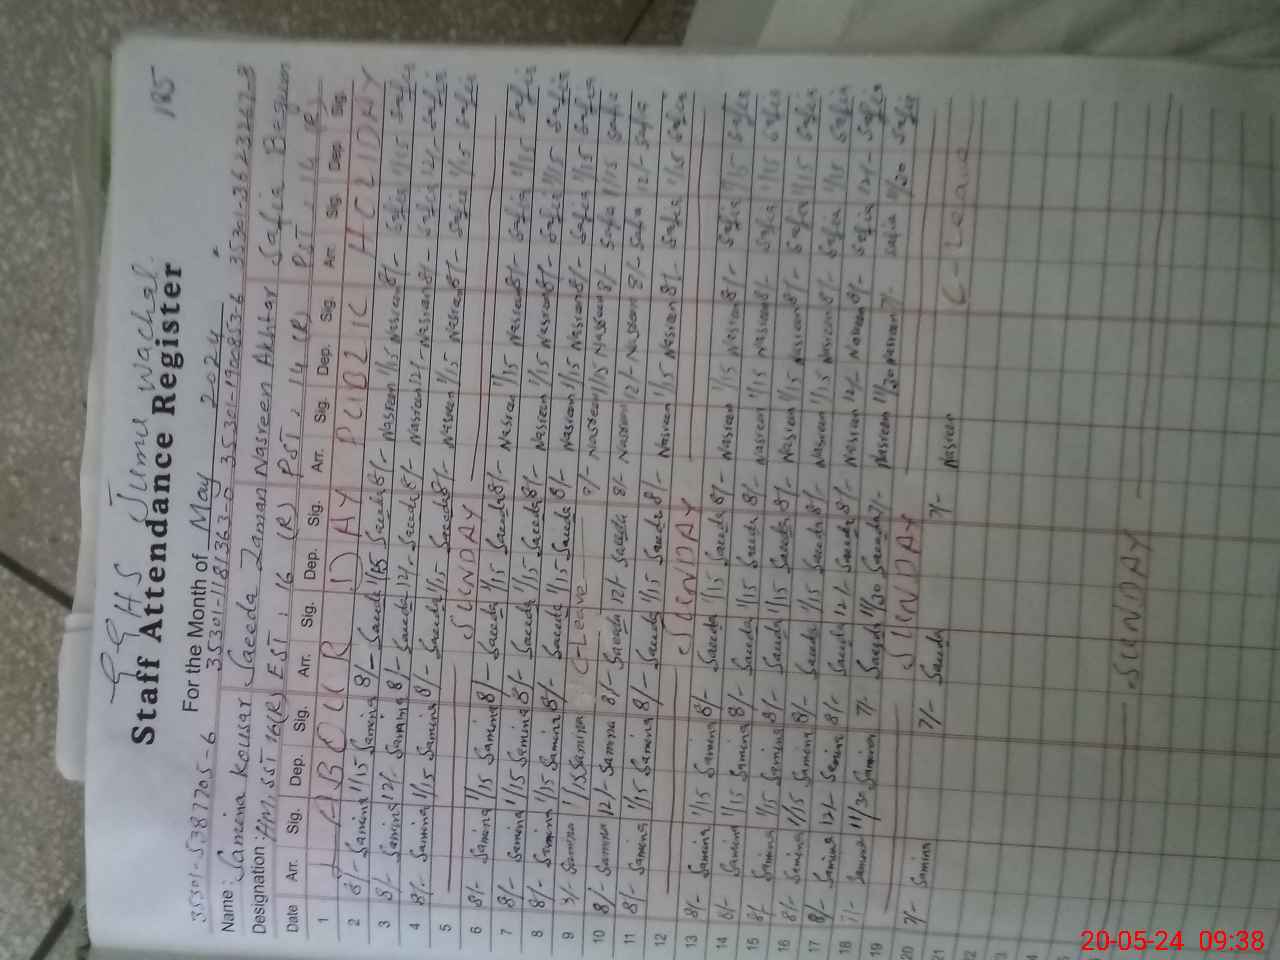 185
GGHS Jumu wachal.
Staff Attendance Register
For the Month of May 2024
35301-5387705-6 35301-1181363-0 35301-1900853-6
Name: Samena Kousar Saeeda Zaman Nasreen Akhtar Safia Begum
Designation: HM, SST 16(R) EST : 16 (R) PST : 14 (R) PST : 14 (R)
Date Arr. Sig. Dep. Sig. Arr. Sig. Dep. Sig. Arr. Sig. Dep. Sig. Arr. Sig. Dep. Sig.
1 LABOUR DAY PUBLIC HOLIDAY
2 8/- Samina 1/15 Samina 8/- Saeeda 1/15 Saeeda 8/- Nasreen 1/15 Nasreen 8/- Safia 1/15 Safia
3 8/- Samina 12/- Samina 8/- Saeeda 12/- Saeeda 8/- Nasreen 12/- Nasreen 8/- Safia 12/- Safia
4 8/- Samina 1/15 Samina 8/- Saeeda 1/15 Saeeda 8/- Nasreen 1/15 Nasreen 8/- Safia 1/15 Safia
5 SUNDAY
6 8/- Samina 1/15 Samina 8/- Saeeda 1/15 Saeeda 8/- Nasreen 1/15 Nasreen 8/- Safia 1/15 Safia
7 8/- Samina 1/15 Samina 8/- Saeeda 1/15 Saeeda 8/- Nasreen 1/15 Nasreen 8/- Safia 1/15 Safia
8 8/- Samina 1/15 Samina 8/- Saeeda 1/15 Saeeda 8/- Nasreen 1/15 Nasreen 8/- Safia 1/15 Safia
9 Samina 1/15 Samina C-Leave Nasreen 1/15 Nasreen 8/- Safia 1/15 Safia
10 8/- Samina 12/- Samina 8/- Saeeda 12/- Saeeda 8/- Nasreen 12/- Nasreen 8/- Safia 12/- Safia
11 8/- Samina 1/15 Samina 8/- Saeeda 1/15 Saeeda 8/- Nasreen 1/15 Nasreen 8/- Safia 1/15 Safia
12 SUNDAY
13 8/- Samina 1/15 Samina 8/- Saeeda 1/15 Saeeda 8/- Nasreen 1/15 Nasreen 8/- Safia 1/15 Safia
14 8/- Samina 1/15 Samina 8/- Saeeda 1/15 Saeeda 8/- Nasreen 1/15 Nasreen 8/- Safia 1/15 Safia
15 8/- Samina 1/15 Samina 8/- Saeeda 1/15 Saeeda 8/- Nasreen 1/15 Nasreen 8/- Safia 1/15 Safia
16 8/- Samina 1/15 Samina 8/- Saeeda 1/15 Saeeda 8/- Nasreen 1/15 Nasreen 8/- Safia 1/15 Safia
17 8/- Samina 12/- Samina 8/- Saeeda 12/- Saeeda 8/- Nasreen 12/- Nasreen 8/- Safia 12/- Safia
18 7/- Samina 11/30 Samina 7/- Saeeda 11/30 Saeeda 7/- Nasreen 11/30 Nasreen 7/- Safia 11/30 Safia
19 SUNDAY
20 7/- Samina 7/- Saeeda 7/- Nasreen C-Leave
21
22
23
24
25
SUNDAY
20-05-24 09:38